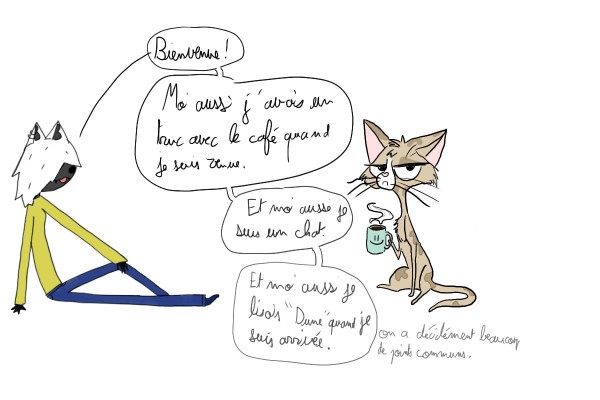 Bienvenue !
Moi aussi j'avais un
truc avec le café quand
je suis venue.
Et moi aussi je
suis un chat.
Et moi aussi je
lisais "Dune" quand je
suis arrivée.
on a décidément beaucoup
de points communs.